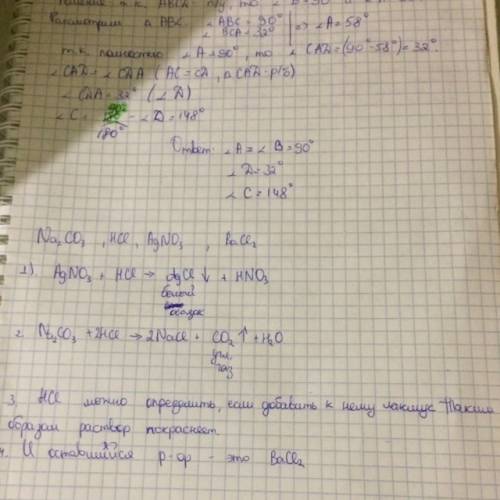 т.к. ABCD - п/у, то ∠B = 90°
Рассмотрим △ ABC: ∠ABC = 90° | ⇒ ∠A = 58°
∠BCA = 32°
т.к. полностью ∠A = 90°, то ∠CAD = (90° - 58°) = 32°
∠CAD = ∠CDA (AC = CD, △ CAD - р/б)
∠CDA = 32° (∠D)
∠C = 180° - ∠D = 148°
Ответ: ∠A = ∠B = 90°
∠D = 32°
∠C = 148°
Na₂CO₃, HCl, AgNO₃, BaCl₂
1) AgNO₃ + HCl → AgCl ↓ + HNO₃
белый
осадок
2. Na₂CO₃ + 2HCl → 2NaCl + CO₂ ↑ + H₂O
угл.
газ
3. HCl можно определить, если добавить к нему лакмус. Таким
образом раствор покраснеет.
4. И оставшийся р-ор - это BaCl₂